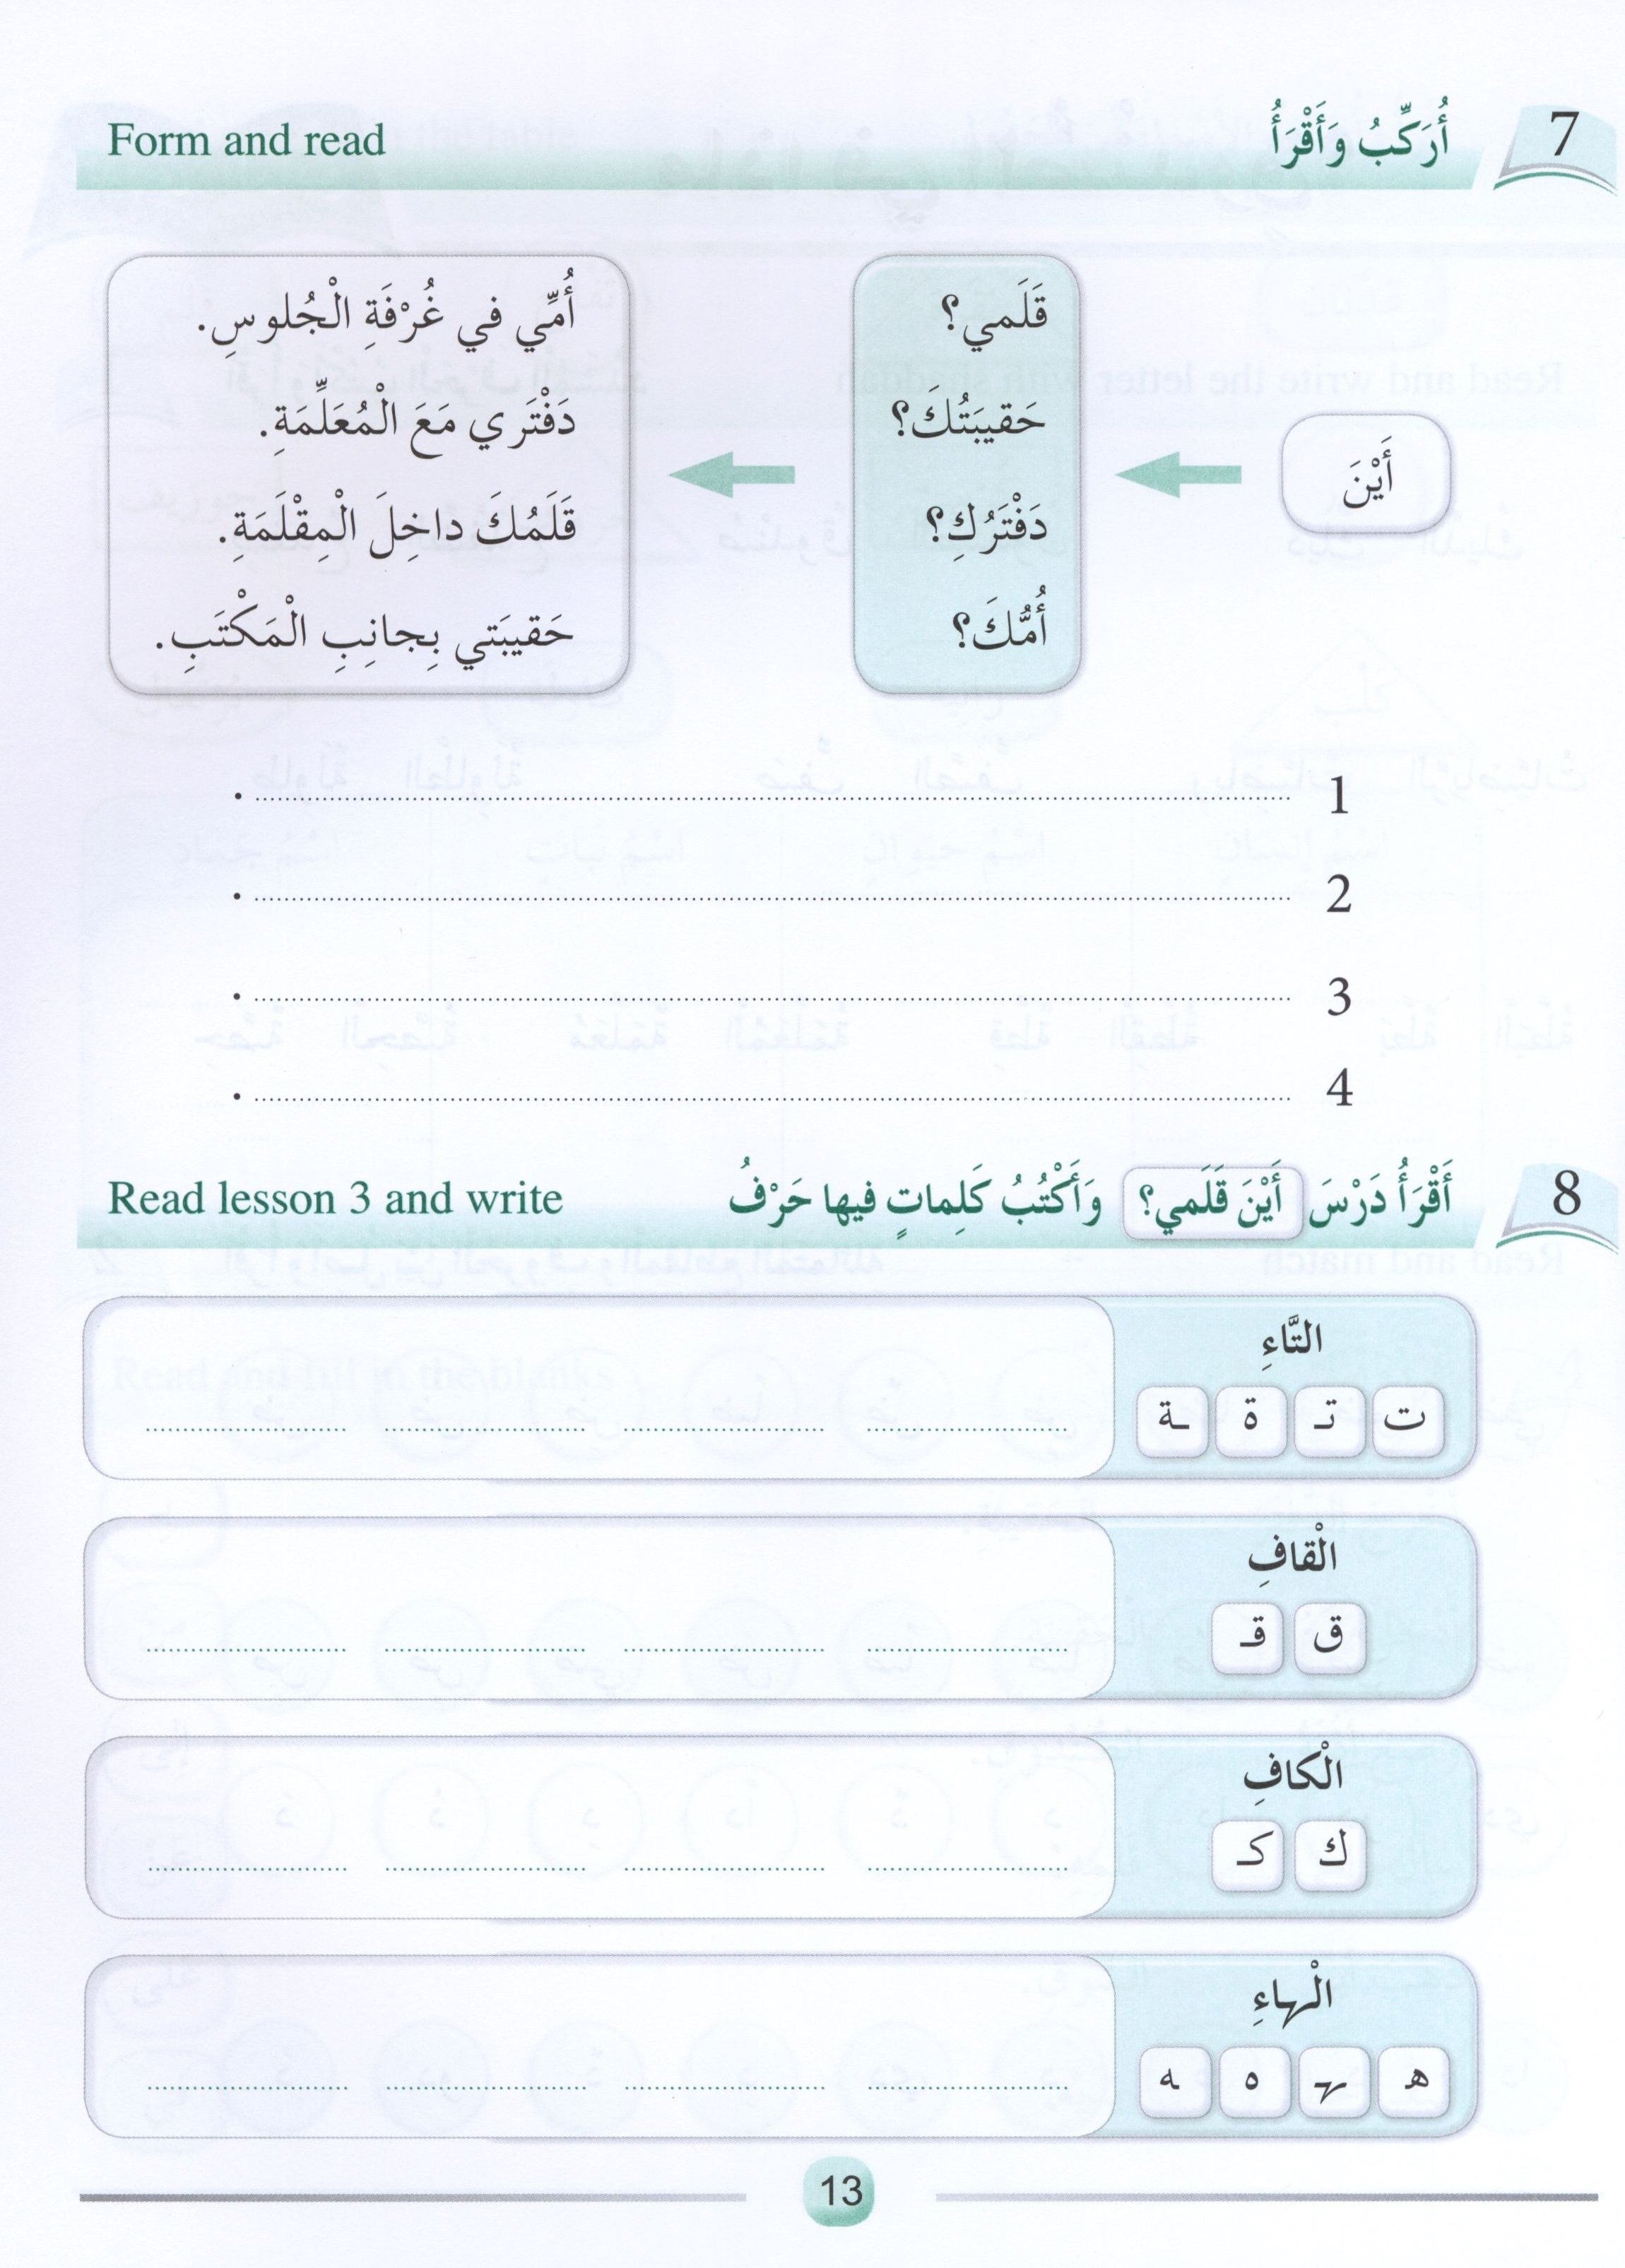 7 أُرَكِّبُ وَأَقْرَأُ Form and read
أَيْنَ
قَلَمي؟
حَقيبَتُكَ؟
دَفْتَرُكِ؟
أُمُّكَ؟
أُمِّي في غُرْفَةِ الْجُلوسِ.
دَفْتَري مَعَ الْمُعَلِّمَةِ.
قَلَمُكَ داخِلَ الْمِقْلَمَةِ.
حَقيبَتي بِجانِبِ الْمَكْتَبِ.
1 .
2 .
3 .
4 .
8 أَقْرَأُ دَرْسَ أَيْنَ قَلَمي؟ وَأَكْتُبُ كَلِماتٍ فيها حَرْفُ Read lesson 3 and write
التَّاءِ
ت تـ ة ـة
الْقافِ
ق قـ
الْكافِ
ك كـ
الْهاءِ
هـ ـهـ ه ـه
13